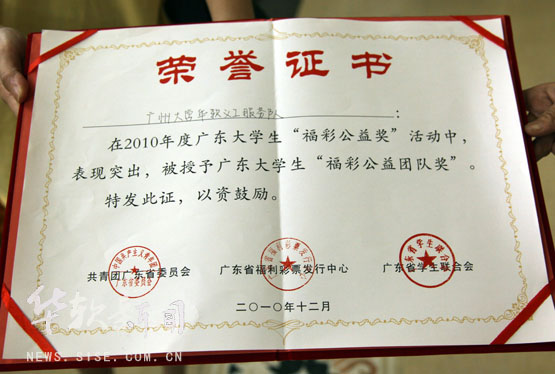 荣誉证书
广州大学华软义工服务队：
在2010年度广东大学生“福彩公益奖”活动中，
表现突出，被授予广东大学生“福彩公益团队奖”。
特发此证，以资鼓励。
共青团广东省委员会 广东省福利彩票发行中心 广东省学生联合会
二〇一〇年十二月
华软新闻
NEWS.SISE.COM.CN